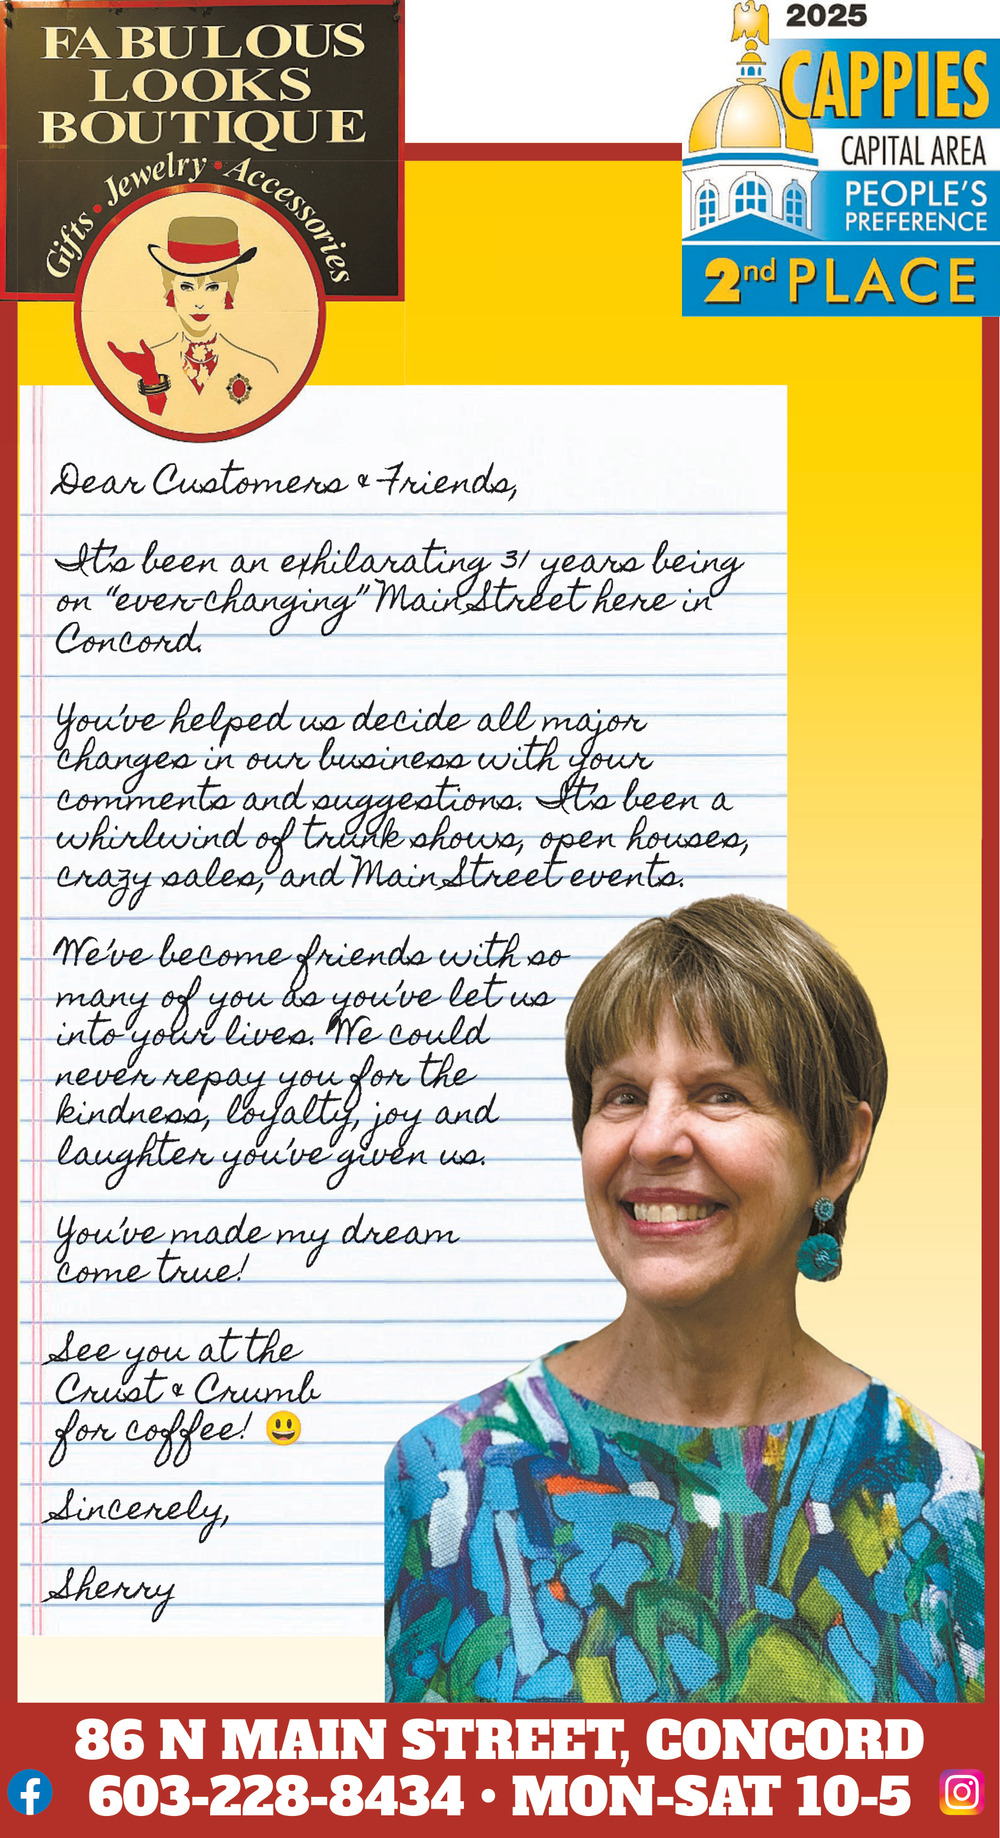 FABULOUS
LOOKS
BOUTIQUE
Gifts • Jewelry • Accessories
2025
CAPPIES
CAPITAL AREA
PEOPLE'S
PREFERENCE
2nd PLACE
Dear Customers & Friends,
It's been an exhilarating 31 years being
on "ever-changing" Main Street here in
Concord.
You've helped us decide all major
changes in our business with your
comments and suggestions. It's been a
whirlwind of trunk shows, open houses,
crazy sales, and Main Street events.
We've become friends with so
many of you as you've let us
into your lives. We could
never repay you for the
kindness, loyalty, joy and
laughter you've given us.
You've made my dream
come true!
See you at the
Crust & Crumb
for coffee! 😃
Sincerely,
Sherry
86 N MAIN STREET, CONCORD
603-228-8434 • MON-SAT 10-5